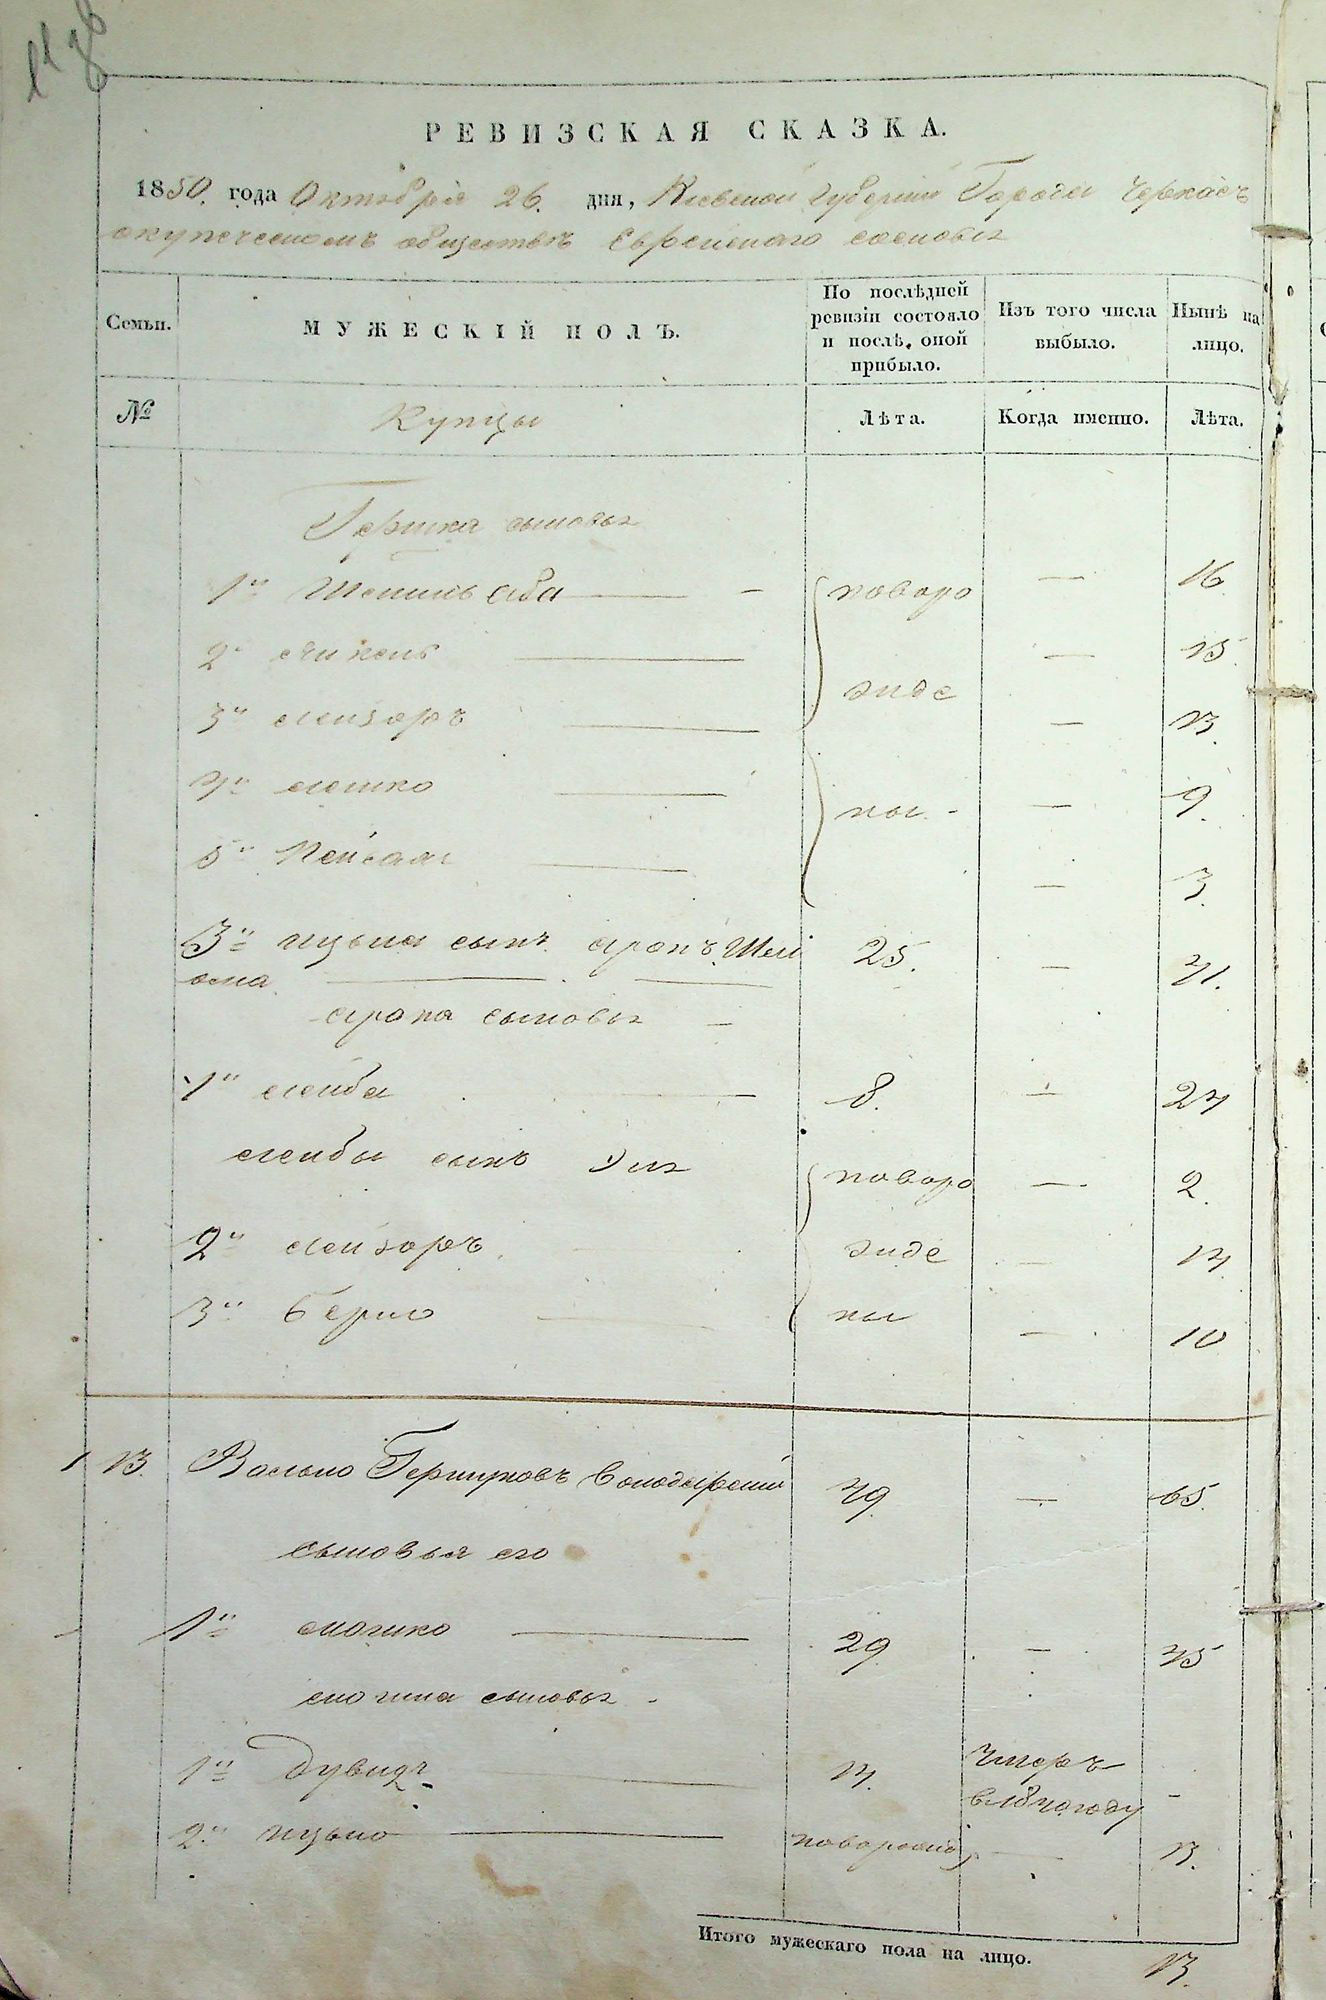 РЕВИЗСКАЯ СКАЗКА.
1850. года Октября 26. дня, Киевской губернии Города Черкасъ
окупеческомъ обществѣ Еврейскаго сословья
Семьи.
МУЖЕСКІЙ ПОЛЪ.
По послѣдней ревизіи состояло и послѣ, оной прибыло.
Изъ того числа выбыло.
Нынѣ на лицо.
№ Купцы Лѣта. Когда именно. Лѣта.
Гершка сыновья
1й Шмиль Аба — новоро — 16.
2й — — 15.
3й Лейзоръ — рожде — 13.
4й Лейко — ны — 9.
5й Пейсахъ — — 3.
3й Ицька сынъ Аронъ Шлі 25. — 41.
ома
Арона сыновья —
1й Лейба — 8. — 24
Лейбы сынъ новоро — 2.
2й Лейзоръ рожде — 14.
3й Берко — ны — 10
13. Волько Гершковъ Володарскій 49. — 65.
сыновья его
1й Мошко — 29. — 45
Мошка сыновья
1й Дувидъ — 14. Умеръ —
в 1840 году
2й Ицько — новорожд — 13.
Итого мужескаго пола на лицо. 13.